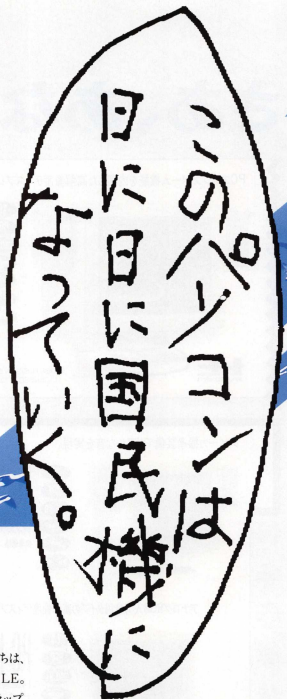 このパソコンは
日に日に国民機に
なっていく。
ちは、
LE。